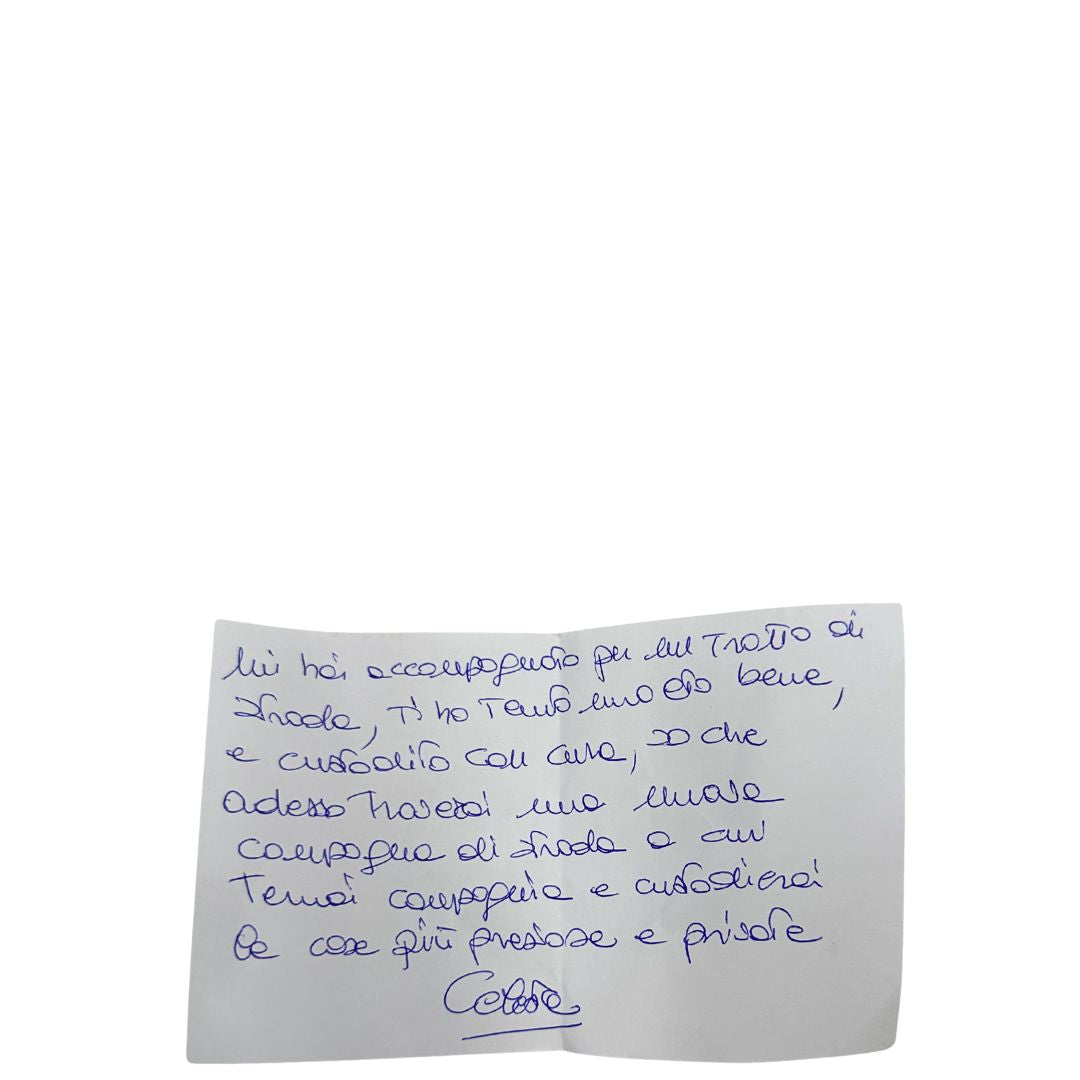 Mi hai accompagnato per un tratto di
strada, ti ho tenuto molto bene,
e custodito con cura, so che
adesso troverai una nuova
compagna di strada a cui
Terrai compagnia e custodirai
le cose più preziose e private
Celeste